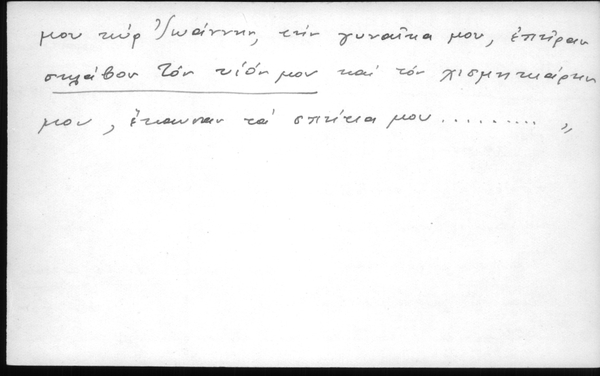 μου κύρ Ἰωάννη, τήν γυναῖκα μου, ἐπῆραν
σκλάβον τόν υἱόν μου καί τόν χισμηκιάρην
μου, ἔκαυσαν τά σπίτια μου .......... „